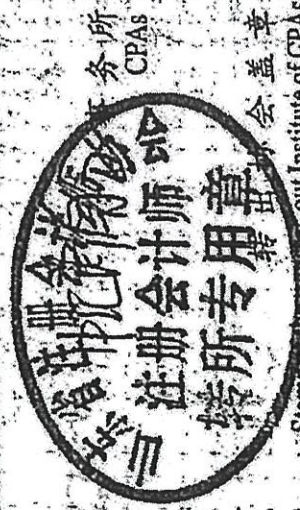 务所
CPAs
山东省注册会计师协会
注册会计师
转所专用章
会盖章
Institute of CPAs